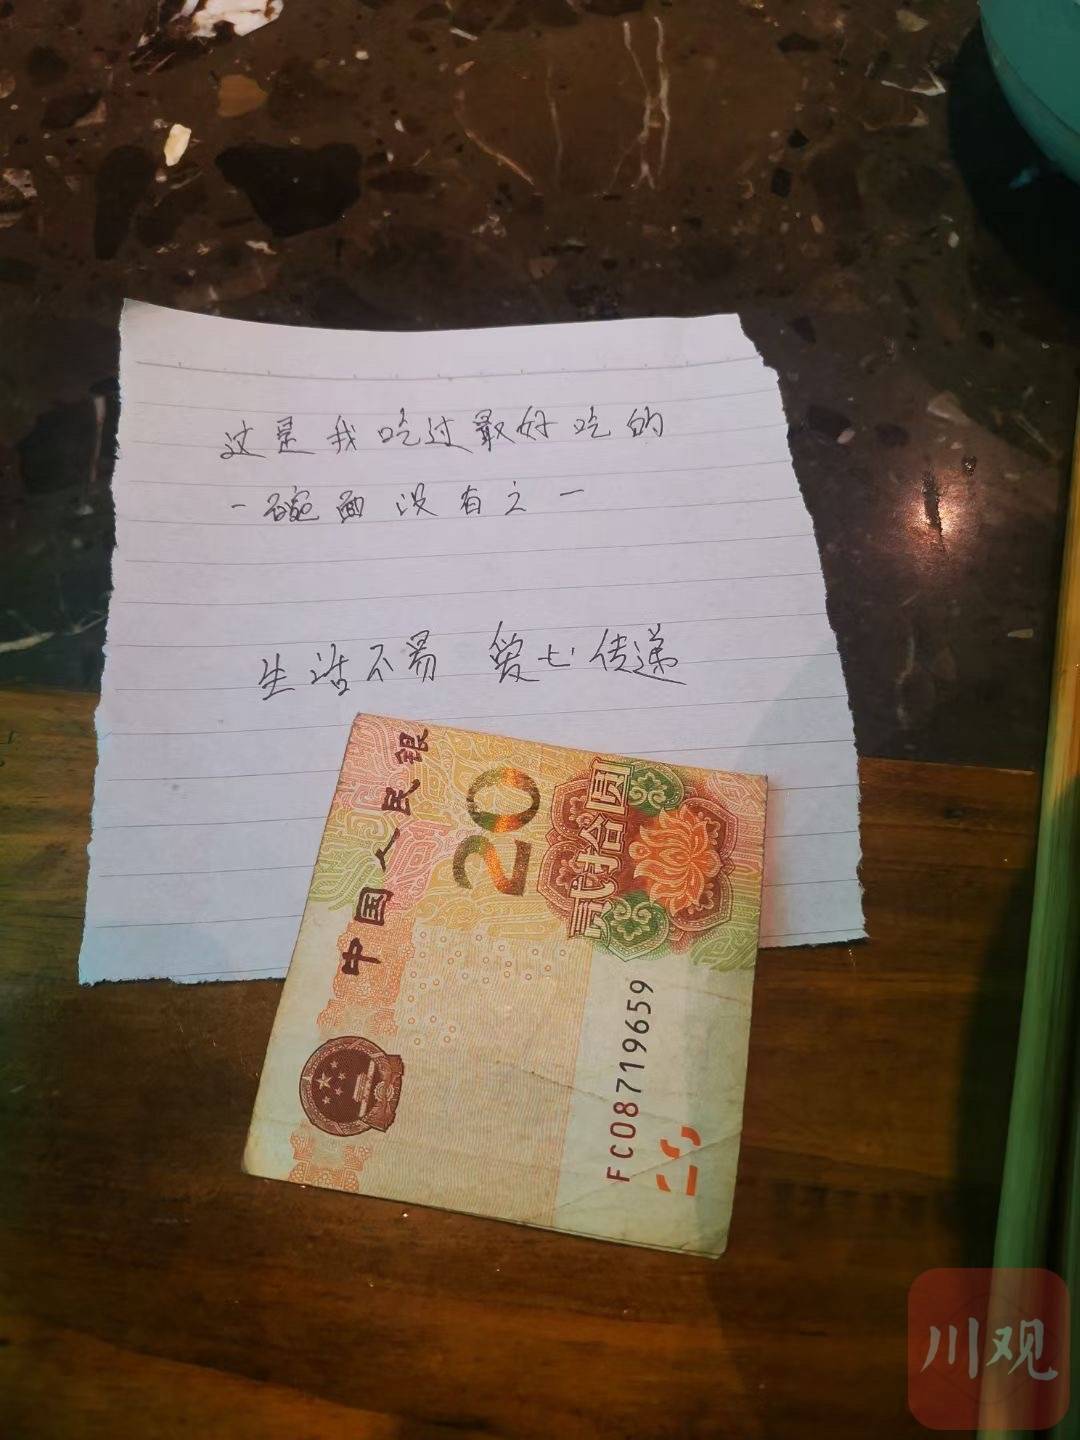 这是我吃过最好吃的
一碗面没有之一
生活不易 爱心传递
中国人民银
20
贰拾圆
FC08719659
川观